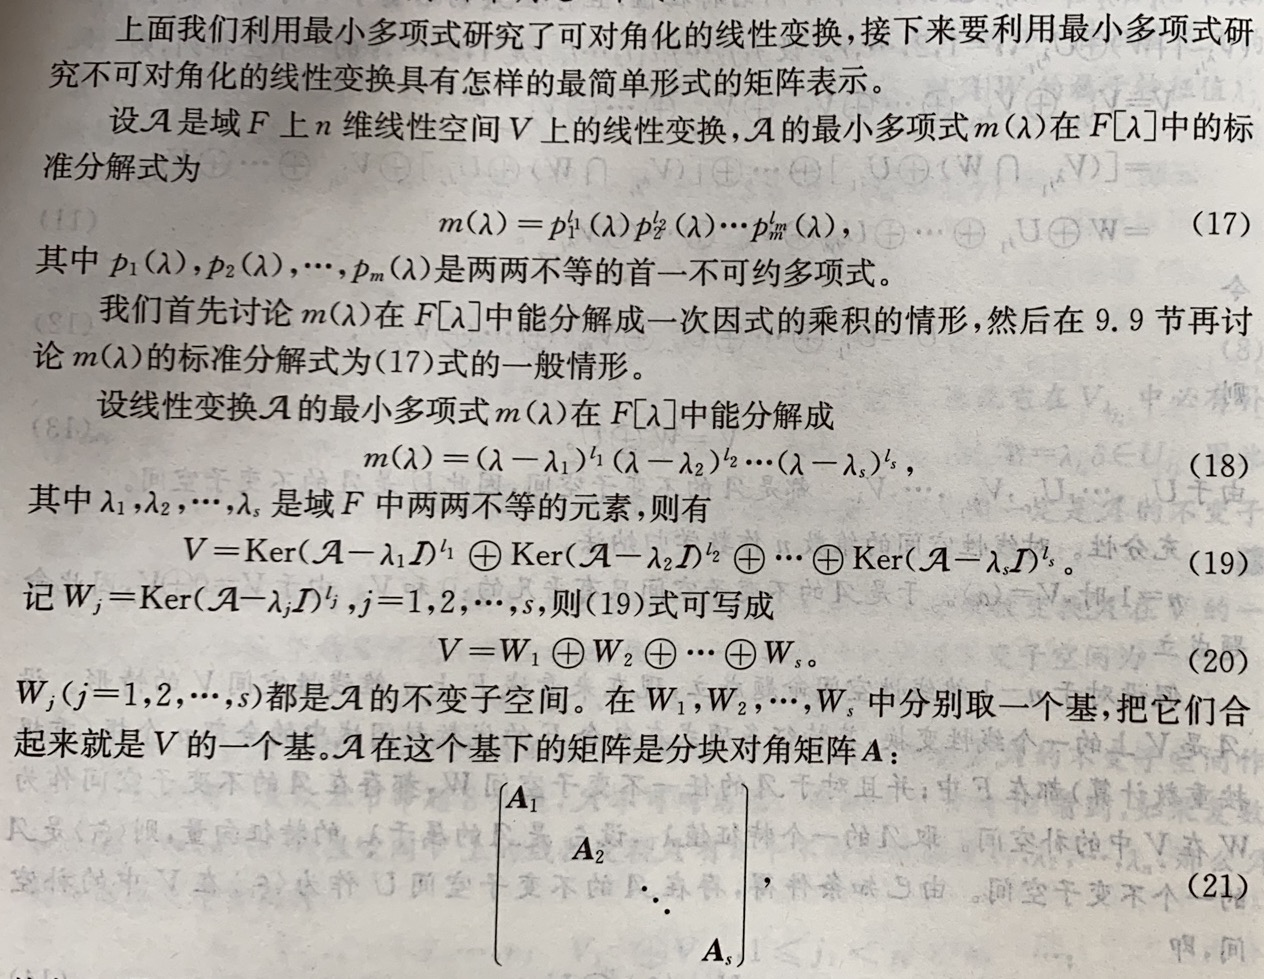 上面我们利用最小多项式研究了可对角化的线性变换,接下来要利用最小多项式研
究不可对角化的线性变换具有怎样的最简单形式的矩阵表示。
设𝒜是域 F 上 n 维线性空间 V 上的线性变换,𝒜的最小多项式 m(λ)在 F[λ]中的标
准分解式为
m(λ)=p₁^{l₁}(λ)p₂^{l₂}(λ)⋯pₘ^{lₘ}(λ), (17)
其中 p₁(λ),p₂(λ),⋯,pₘ(λ)是两两不等的首一不可约多项式。
我们首先讨论 m(λ)在 F[λ]中能分解成一次因式的乘积的情形,然后在 9.9 节再讨
论 m(λ)的标准分解式为(17)式的一般情形。
设线性变换𝒜的最小多项式 m(λ)在 F[λ]中能分解成
m(λ)=(λ−λ₁)^{l₁}(λ−λ₂)^{l₂}⋯(λ−λₛ)^{lₛ}, (18)
其中 λ₁,λ₂,⋯,λₛ 是域 F 中两两不等的元素,则有
V=Ker(𝒜−λ₁ℐ)^{l₁}⊕Ker(𝒜−λ₂ℐ)^{l₂}⊕⋯⊕Ker(𝒜−λₛℐ)^{lₛ}。 (19)
记 Wⱼ=Ker(𝒜−λⱼℐ)^{lⱼ},j=1,2,⋯,s,则(19)式可写成
V=W₁⊕W₂⊕⋯⊕Wₛ。 (20)
Wⱼ(j=1,2,⋯,s)都是𝒜的不变子空间。在 W₁,W₂,⋯,Wₛ 中分别取一个基,把它们合
起来就是 V 的一个基。𝒜在这个基下的矩阵是分块对角矩阵 A:
A₁
A₂
⋱ , (21)
Aₛ